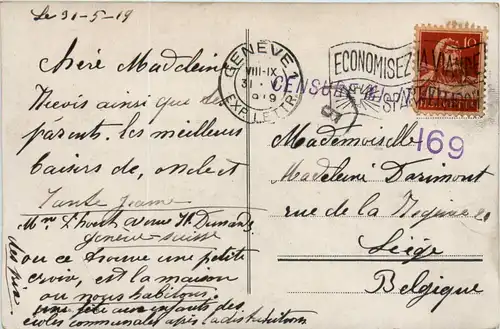 Le 31-5-19
Chère Madeleine
Reçois ainsi que tes
parents les meilleurs
baisers de, oncle et
Tante
Mme avenue Hi Dunand
Genève - Suisse
ou ce trouve une petite
croix, est la maison
ou nous habitons.
une fête aux enfants des
écoles communales après la distribution
des prix
GENÈVE 1
VIII-IX
31. V
1919
EXP. LETTR.
ECONOMISEZ LA VIANDE
10
169
Mademoiselle
Madeleine Darimont
rue de la
Liège
Belgique